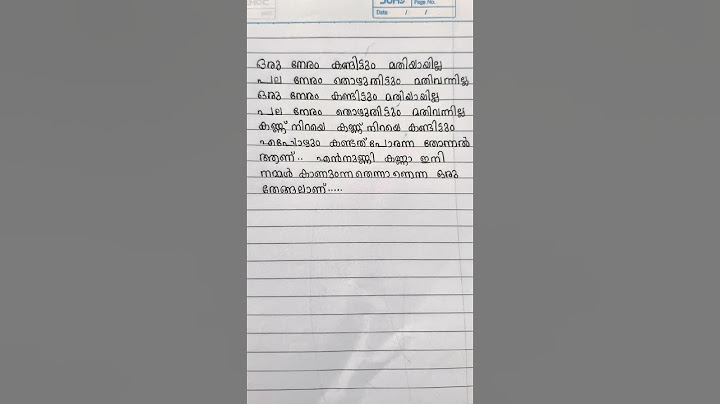 Page No.
Date / /
ഒരു നേരം കണ്ടിട്ടും മതിയായില്ല
പല നേരം തൊഴുതിട്ടും മതിവന്നില്ല
ഒരു നേരം കണ്ടിട്ടും മതിയായില്ല
പല നേരം തൊഴുതിട്ടും മതിവന്നില്ല
കണ്ണ് നിറയെ കണ്ണ് നിറയെ കണ്ടിട്ടും
എപ്പോഴും കണ്ടത് പോരന്ന തോന്നൽ
ആണ്.. എൻനുണ്ണി കണ്ണാ ഇനി
നമ്മൾ കാണുംന്നതെന്നാണെന്ന ഒരു
തേങ്ങലാണ്.....